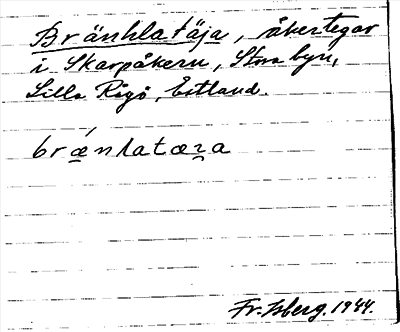 Bränhlatäja, åkertegar
i Skarpåkern, Stora byn,
Lilla Rågö, Estland.
brǽnlatæja
Fr. Isberg. 1944.